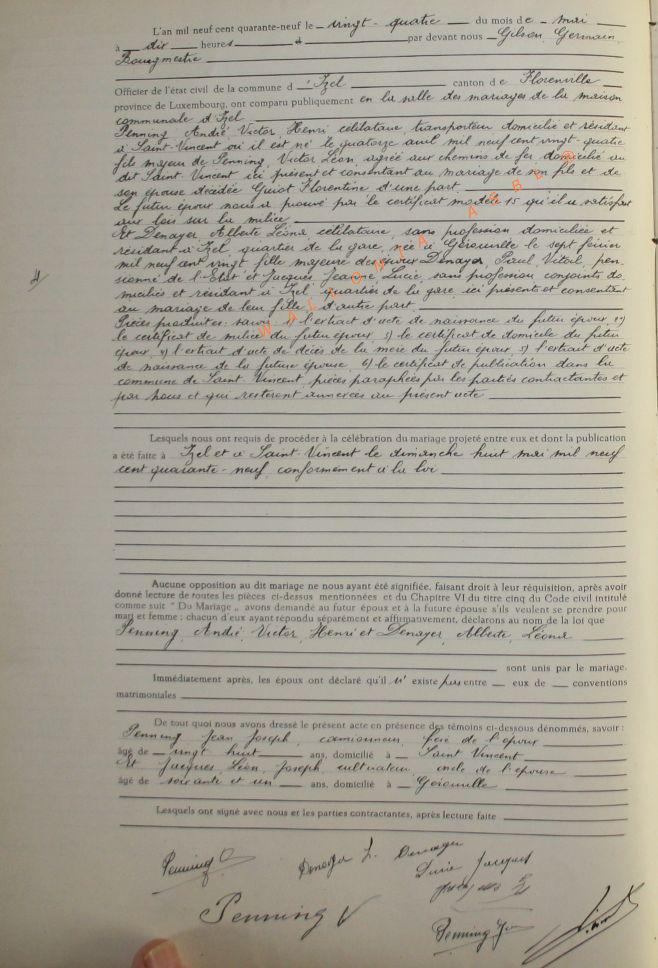 L'an mil neuf cent quarante-neuf le vingt-quatre du mois de mai
à dix heures par devant nous Gilson, Germain,
Bourgmestre
Officier de l'état civil de la commune d'Izel canton de Florenville
province de Luxembourg, ont comparu publiquement en la salle des mariages de la maison
communale d'Izel
Penning André Victor, Henri célibataire, transporteur domicilié et résidant
à Saint-Vincent où il est né le quatorze avril mil neuf cent vingt-quatre
fils majeur de Penning, Victor Léon, agréé aux chemins de fer domicilié au
dit Saint Vincent ici présent et consentant au mariage de son fils et de
son épouse décédée Guiot Florentine d'une part.
Le futur époux nous a prouvé par le certificat modèle 15 qu'il a satisfait
aux lois sur la milice
Et Denayer, Alberte Léona célibataire, sans profession domiciliée et
résidant à Izel, quartier de la gare, née à Gérouville le sept février
mil neuf cent vingt fille majeure des époux Denayer, Paul Vital, pen-
sionné de l'Etat et Jacques Jeanne Lucie, sans profession conjoints do-
miciliés et résidant à Izel quartier de la gare ici présents et consentant
au mariage de leur fille, d'autre part.
Pièces produites: savoir 1) l'extrait d'acte de naissance du futur époux 2)
le certificat de milice du futur époux 3) le certificat de domicile du futur
époux, 4) l'extrait d'acte de décès de la mère du futur époux, 5) l'extrait d'acte
de naissance de la future épouse, 6) le certificat de publication dans la
commune de Saint Vincent, pièces paraphées par les parties contractantes et
par nous et qui resteront annexées au présent acte
WALLONIA ASBL ®
Lesquels nous ont requis de procéder à la célébration du mariage projeté entre eux et dont la publication
a été faite à Izel et à Saint-Vincent le dimanche huit mai mil neuf
cent quarante-neuf, conformément à la loi
Aucune opposition au dit mariage ne nous ayant été signifiée, faisant droit à leur réquisition, après avoir
donné lecture de toutes les pièces ci-dessus mentionnées et du Chapitre VI du titre cinq du Code civil intitulé
comme suit "Du Mariage„ avons demandé au futur époux et à la future épouse s'ils veulent se prendre pour
mari et femme : chacun d'eux ayant répondu séparément et affirmativement, déclarons au nom de la loi que
Penning, André, Victor, Henri et Denayer, Alberte, Léona
sont unis par le mariage.
Immédiatement après, les époux ont déclaré qu'il n'existe pas entre eux de conventions
matrimoniales
De tout quoi nous avons dressé le présent acte en présence des témoins ci-dessous dénommés, savoir :
Penning Jean Joseph, camionneur, frère de l'époux
âgé de vingt huit ans, domicilié à Saint Vincent
Et Jacques, Léon, Joseph, cultivateur, oncle de l'épouse
âgé de soixante et un ans, domicilié à Gérouville
Lesquels ont signé avec nous et les parties contractantes, après lecture faite
Penning
Denayer L. Denayer
Lucie Jacques
Jacques
Penning V
Penning